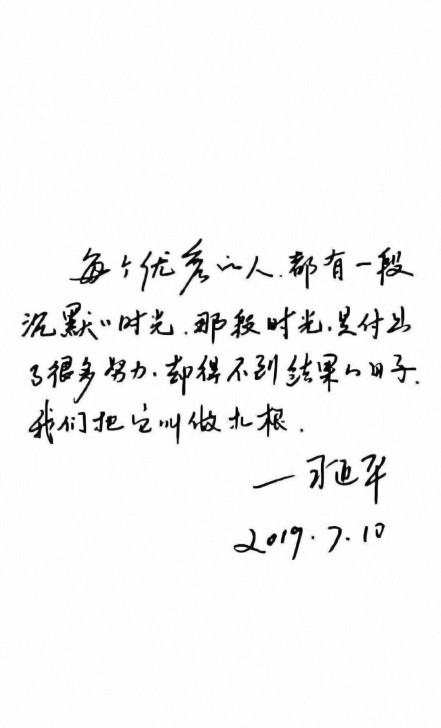 每个优秀的人.都有一段
沉默的时光.那段时光.是付出
了很多努力.却得不到结果的日子.
我们把它叫做扎根.
—习迎华
2019.7.10